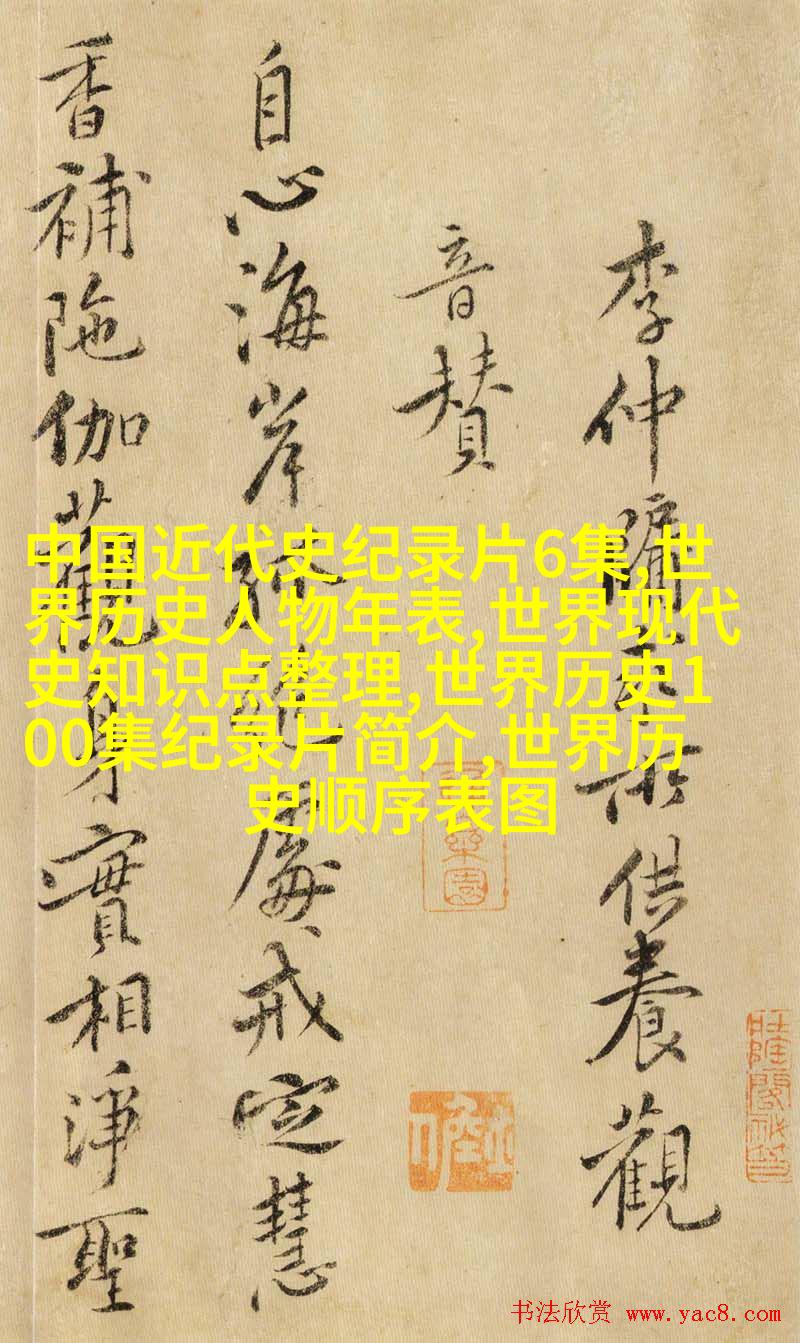 李仲所供養觀
音賛
自心海岸處戒定慧
香補陁伽觀身實相淨聖
中国近代史纪录片6集,世
界历史人物年表,世界现代
史知识点整理,世界历史1
00集纪录片简介,世界历
史顺序表图
书法欣赏 www.yac8.com